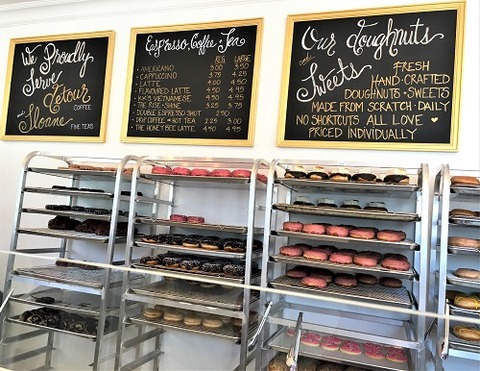 We Proudly
Serve
Detour
COFFEE
and Sloane
FINE TEAS
Espresso, Coffee, Tea
REG. LARGE
• AMERICANO 3.00 3.50
• CAPPUCCINO 3.75 4.25
• LATTE 4.00 4.50
• FLAVOURED LATTE 4.50 4.95
• KK'S VIETNAMESE 4.50 4.95
• THE RISE + SHINE 3.25 3.75
• DOUBLE ESPRESSO SHOT 2.50
• DRIP COFFEE OR HOT TEA 2.25 3.00
• THE HONEY BEE LATTE 4.50 4.95
Our doughnuts
and Sweets
FRESH
HAND-CRAFTED
DOUGHNUTS + SWEETS
MADE FROM SCRATCH • DAILY
NO SHORTCUTS ALL LOVE ♥
PRICED INDIVIDUALLY